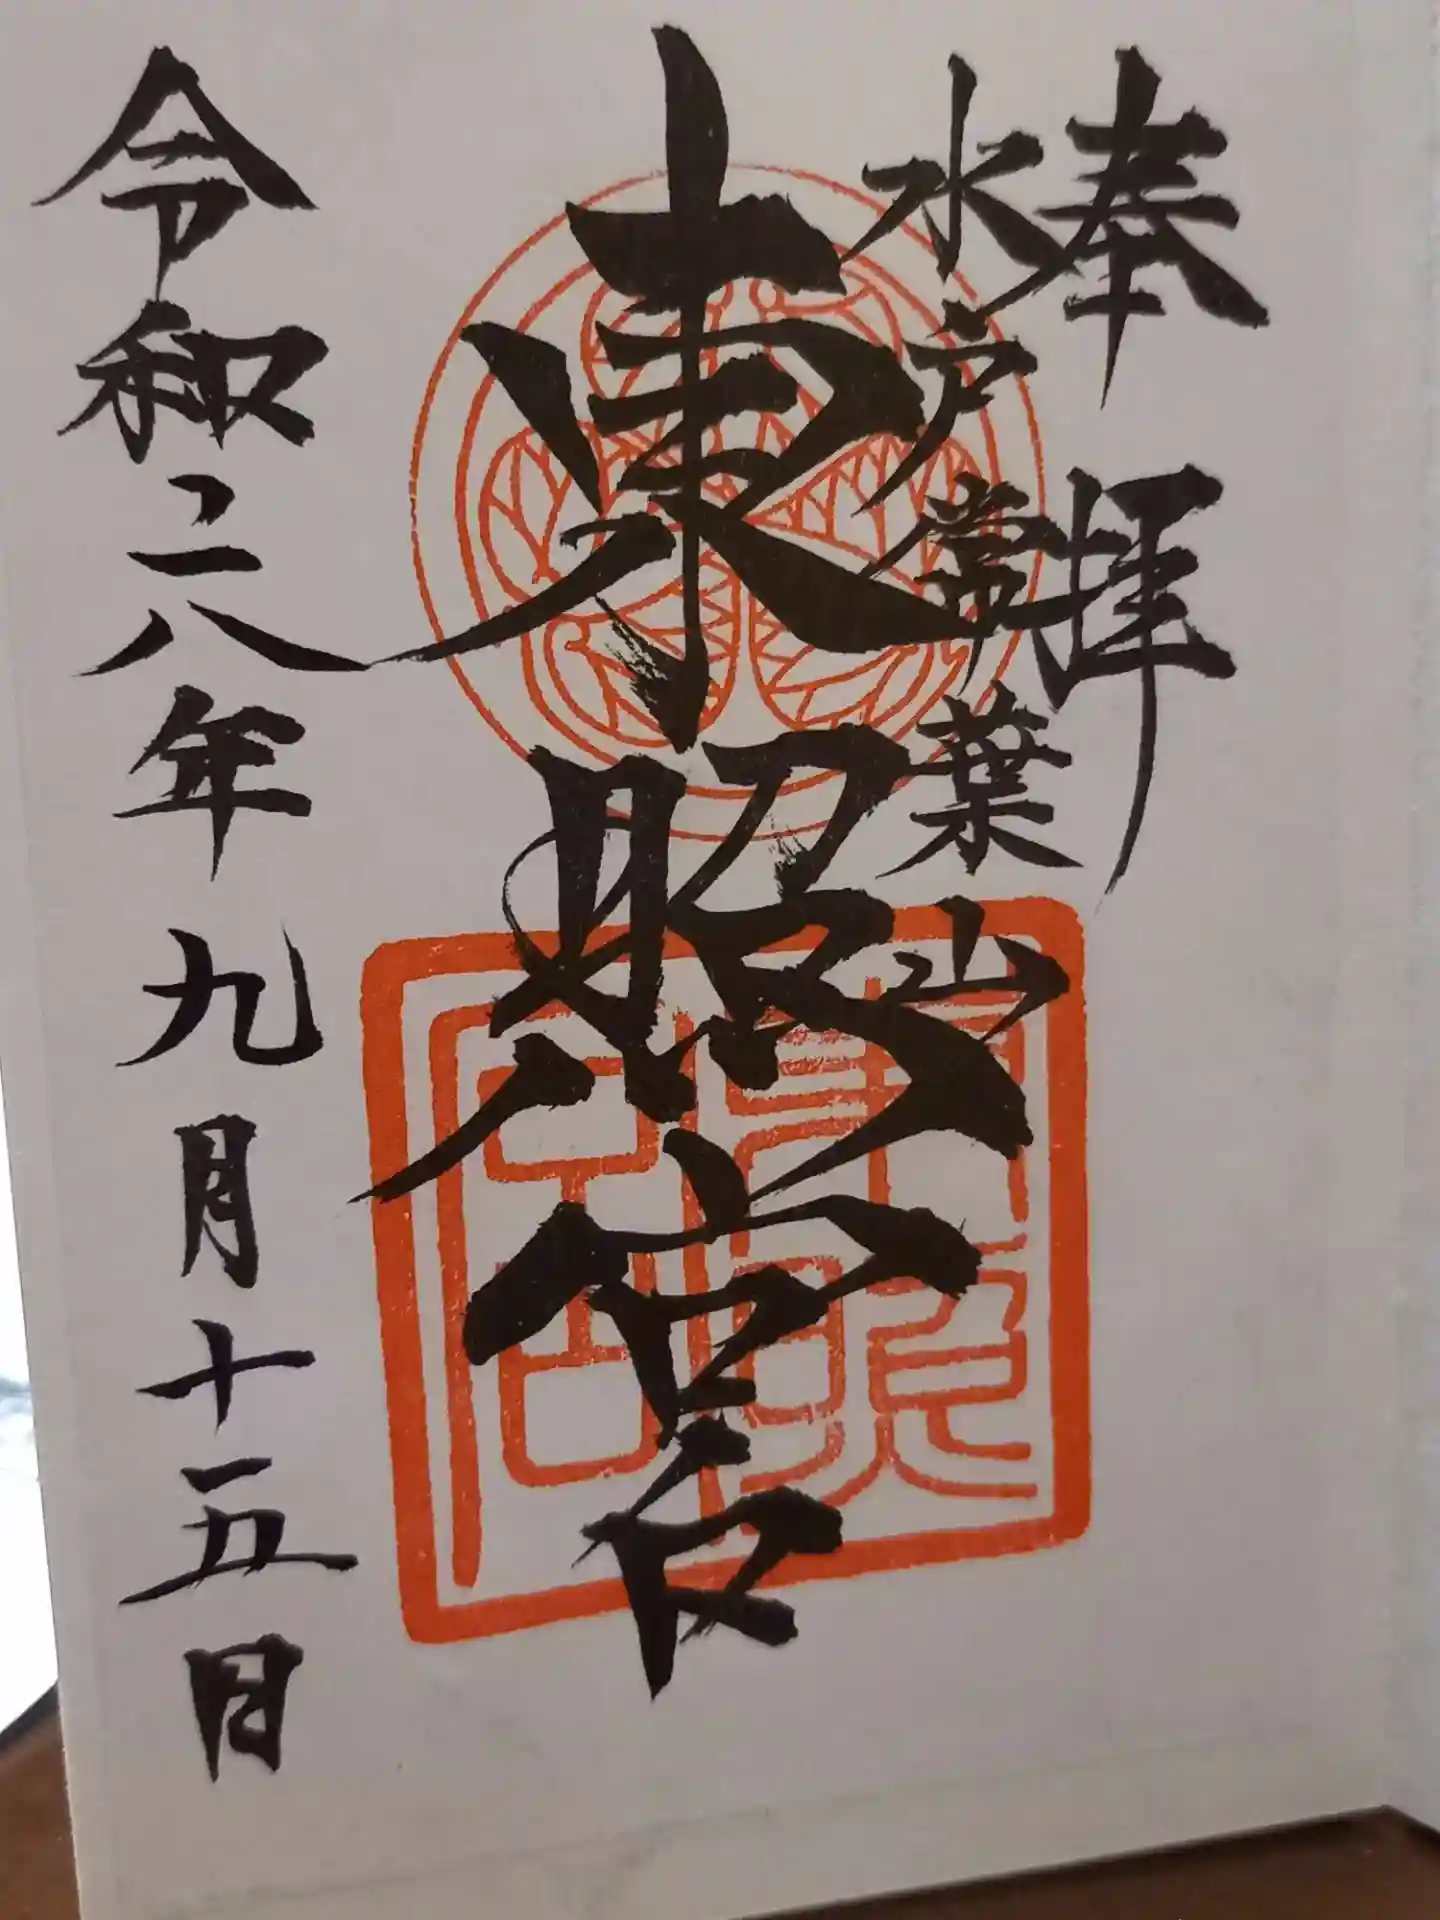 奉拝
水戸常葉山
東照宮
令和六年九月十五日
東照宮